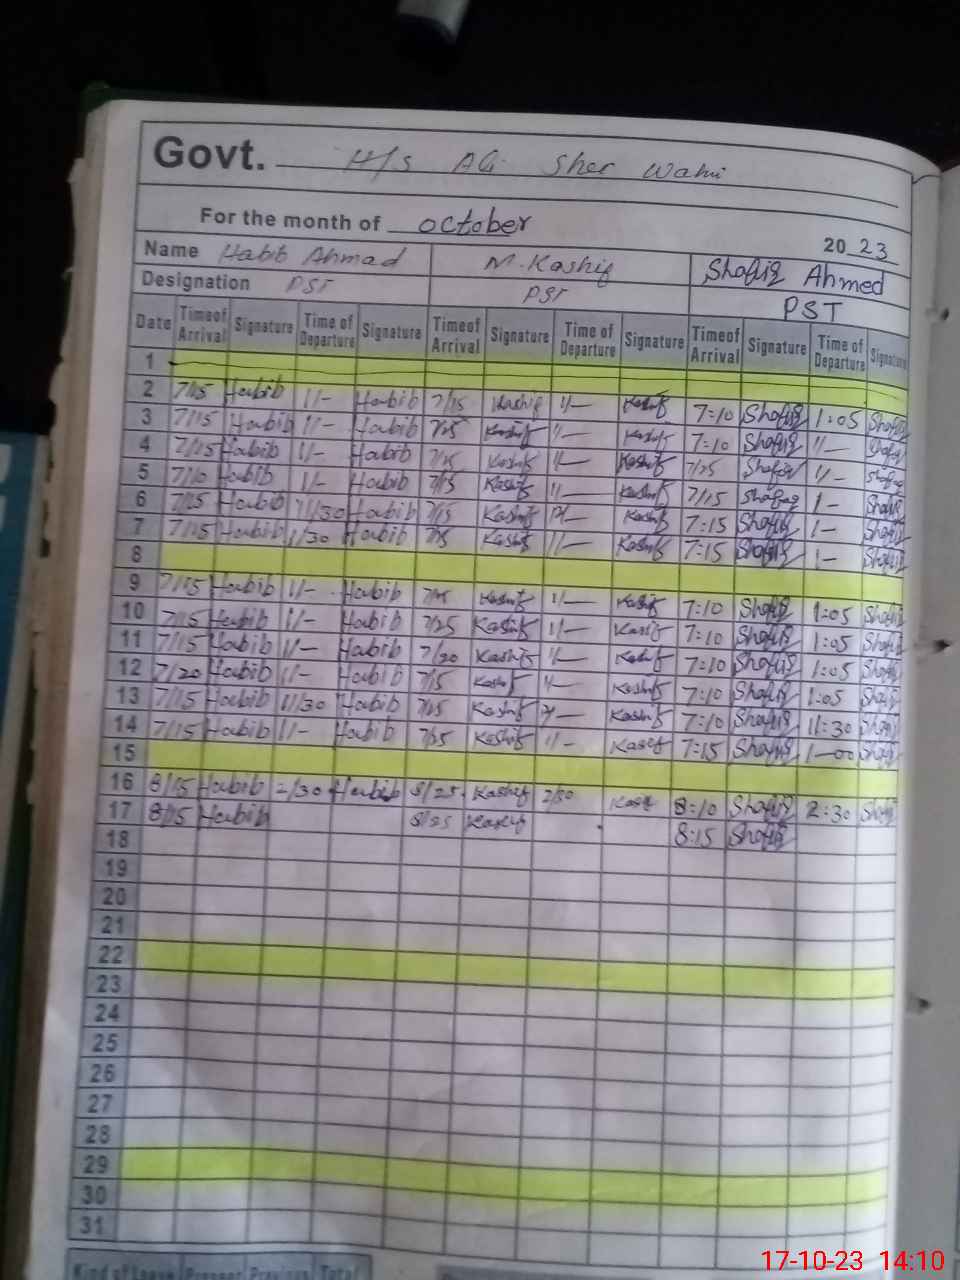 Govt. H/s Ali Sher Wahi
For the month of October 2023
Name Habib Ahmad M. Kashif Shafiq Ahmed
Designation PST PST PST
Date Time of Arrival Signature Time of Departure Signature Time of Arrival Signature Time of Departure Signature Time of Arrival Signature Time of Departure Signature
1
2 7/15 Habib 1/- Habib 7/15 Kashif 1/- Kashif 7:10 Shafiq 1:05 Shafiq
3 7/15 Habib 1/- Habib Kashif 1/- Kashif 7:10 Shafiq 1/- Shafiq
4 7/15 Habib 1/- Habib Kashif 1/- Kashif 7/15 Shafiq 1/- Shafiq
5 7/10 Habib 1/- Habib 7/15 Kashif 1/- Kashif 7/15 Shafiq 1- Shafiq
6 7/15 Habib 11/30 Habib 7/15 Kashif Kashif 7:15 Shafiq 1- Shafiq
7 7/15 Habib 1/30 Habib Kashif 1/- Kashif 7:15 Shafiq 1- Shafiq
8
9 7/15 Habib 1/- Habib Kashif 1/- Kashif 7:10 Shafiq 1:05 Shafiq
10 7/15 Habib 1/- Habib 7/25 Kashif 1/- Kashif 7:10 Shafiq 1:05 Shafiq
11 7/15 Habib 1/- Habib 7/20 Kashif 1/- Kashif 7:10 Shafiq 1:05 Shafiq
12 7/20 Habib 1/- Habib 7/15 Kashif 1/- Kashif 7:10 Shafiq 1:05 Shafiq
13 7/15 Habib 11/30 Habib Kashif Kashif 7:10 Shafiq 11:30 Shafiq
14 7/15 Habib 1/- Habib 7/25 Kashif 1/- Kashif 7:15 Shafiq 1-00 Shafiq
15
16 8/15 Habib 2/30 Habib 8/25 Kashif 2/30 Kashif 8:10 Shafiq 2:30 Shafiq
17 8/15 Habib 8/25 Kashif 8:15 Shafiq
18
19
20
21
22
23
24
25
26
27
28
29
30
31
Kind of Leave Present Previous Total
17-10-23 14:10